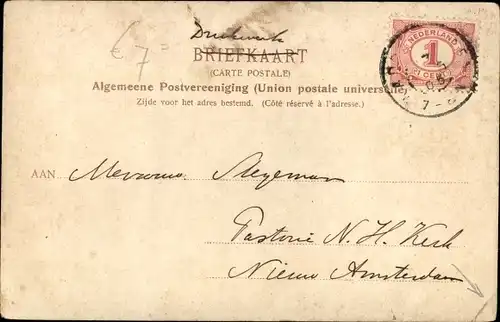 Drukwerk
€ 7
BRIEFKAART
(CARTE POSTALE)
Algemeene Postvereeniging (Union postale universelle)
Zijde voor het adres bestemd. (Côté réservé à l'adresse.)
NEDERLAND
1
CENT
7 -
AAN Mevrouw Stegeman
Pastorie N. H. Kerk
Nieuw Amsterdam